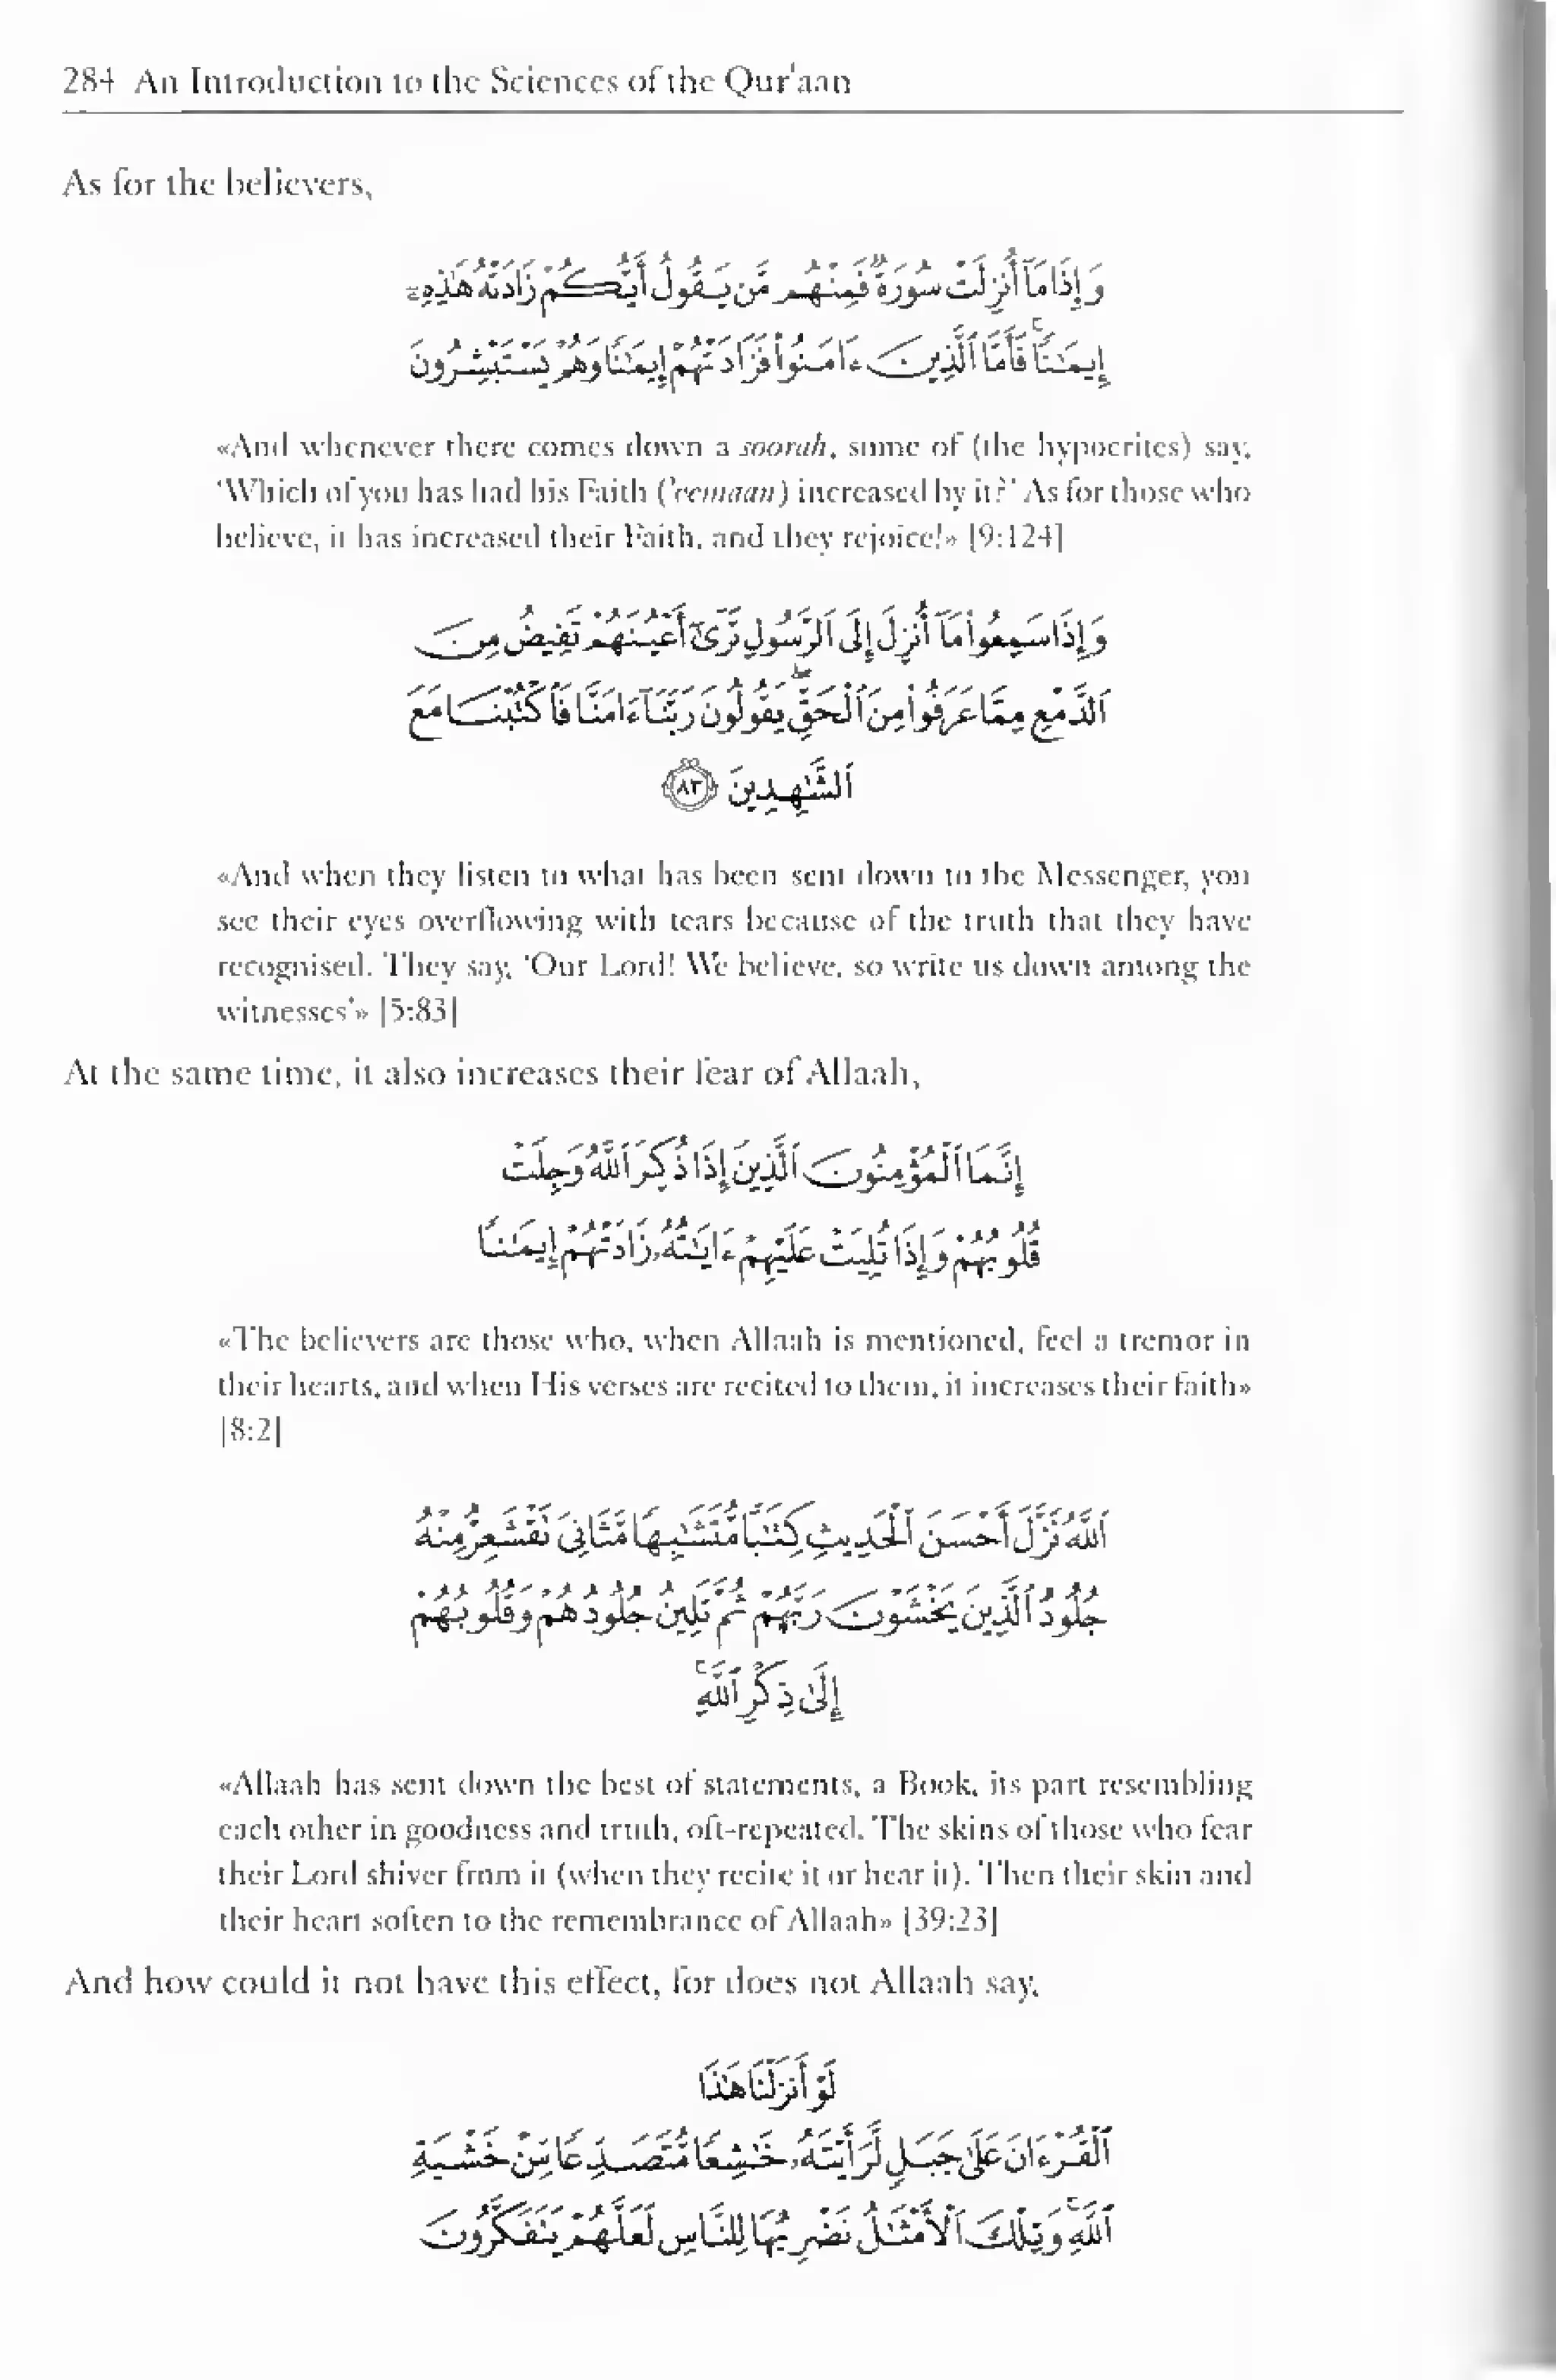 284 An Introduction to the Sciences of the Qur'aan
As for the believers,
وَإِذَا مَآ أُنزِلَتْ سُورَةٌ فَمِنْهُم مَّن يَقُولُ أَيُّكُمْ زَادَتْهُ هَٰذِهِۦٓ
إِيمَٰنًا ۚ فَأَمَّا ٱلَّذِينَ ءَامَنُوا۟ فَزَادَتْهُمْ إِيمَٰنًا وَهُمْ يَسْتَبْشِرُونَ
«And whenever there comes down a soorah, some of (the hypocrites) say,
'Which of you has had his Faith ('eemaan) increased by it?' As for those who
believe, it has increased their Faith, and they rejoice!» [9:124]
وَإِذَا سَمِعُوا۟ مَآ أُنزِلَ إِلَى ٱلرَّسُولِ تَرَىٰٓ أَعْيُنَهُمْ تَفِيضُ مِنَ
ٱلدَّمْعِ مِمَّا عَرَفُوا۟ مِنَ ٱلْحَقِّ ۖ يَقُولُونَ رَبَّنَآ ءَامَنَّا فَٱكْتُبْنَا مَعَ
ٱلشَّٰهِدِينَ ٨٣
«And when they listen to what has been sent down to the Messenger, you
see their eyes overflowing with tears because of the truth that they have
recognised. They say, 'Our Lord! We believe, so write us down among the
witnesses'» [5:83]
At the same time, it also increases their fear of Allaah,
إِنَّمَا ٱلْمُؤْمِنُونَ ٱلَّذِينَ إِذَا ذُكِرَ ٱللَّهُ وَجِلَتْ
قُلُوبُهُمْ وَإِذَا تُلِيَتْ عَلَيْهِمْ ءَايَٰتُهُۥ زَادَتْهُمْ إِيمَٰنًا
«The believers are those who, when Allaah is mentioned, feel a tremor in
their hearts, and when His verses are recited to them, it increases their faith»
[8:2]
ٱللَّهُ نَزَّلَ أَحْسَنَ ٱلْحَدِيثِ كِتَٰبًا مُّتَشَٰبِهًا مَّثَانِىَ تَقْشَعِرُّ مِنْهُ
جُلُودُ ٱلَّذِينَ يَخْشَوْنَ رَبَّهُمْ ثُمَّ تَلِينُ جُلُودُهُمْ وَقُلُوبُهُمْ
إِلَىٰ ذِكْرِ ٱللَّهِ ۚ
«Allaah has sent down the best of statements, a Book, its part resembling
each other in goodness and truth, oft-repeated. The skins of those who fear
their Lord shiver from it (when they recite it or hear it). Then their skin and
their heart soften to the remembrance of Allaah» [39:23]
And how could it not have this effect, for does not Allaah say,
لَوْ أَنزَلْنَا هَٰذَا
ٱلْقُرْءَانَ عَلَىٰ جَبَلٍ لَّرَأَيْتَهُۥ خَٰشِعًا مُّتَصَدِّعًا مِّنْ خَشْيَةِ
ٱللَّهِ ۚ وَتِلْكَ ٱلْأَمْثَٰلُ نَضْرِبُهَا لِلنَّاسِ لَعَلَّهُمْ يَتَفَكَّرُونَ